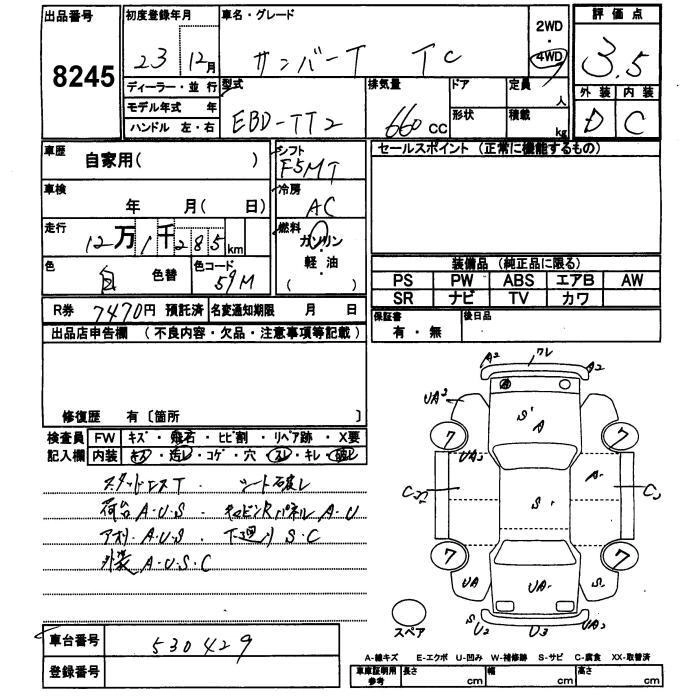 出品番号 初度登録年月 車名・グレード 2WD・4WD 評価点
8245 23 12月 サンバーT TC 3.5
ディーラー・並行 型式 排気量 ドア 定員 人 外装 内装
モデル年式 年 EBD-TT2 660CC 形状 積載 kg D C
ハンドル 左・右
車歴 自家用( ) シフト F5MT セールスポイント (正常に機能するもの)
車検 年 月( 日) 冷房 AC
走行 12万1千285km 燃料 ガソリン
軽・油
( )
色 白 色替 色コード 51M 装備品 (純正品に限る)
PS PW ABS エアB AW
SR ナビ TV カワ
R券 7470円 預託済 名変通知期限 月 日 保証書 有・無 後日品
出品店申告欄 (不良内容・欠品・注意事項等記載)
修復歴 有〔箇所
検査員 FW キズ・飛石・ヒビ割・リペア跡・X要
記入欄 内装 キズ・汚レ・コゲ・穴・スレ・キレ・破レ
スタッドレスT シート破レ
荷台A・U・S・ キャビンRパネルA・U
アオリA・U・S・ 下廻りS・C
外装A・U・S・C
A2 ワレ A2
A
UA3 S1 A
7 7
UA2 A1
C S1 C
7 7
UA UA1 S1
S U2 U3 UA2
スペア
車台番号 530429
登録番号
A-線キズ E-エクボ U-凹み W-補修跡 S-サビ C-腐食 XX-取替済
車庫証明用参考 長さ cm 幅 cm 高さ cm